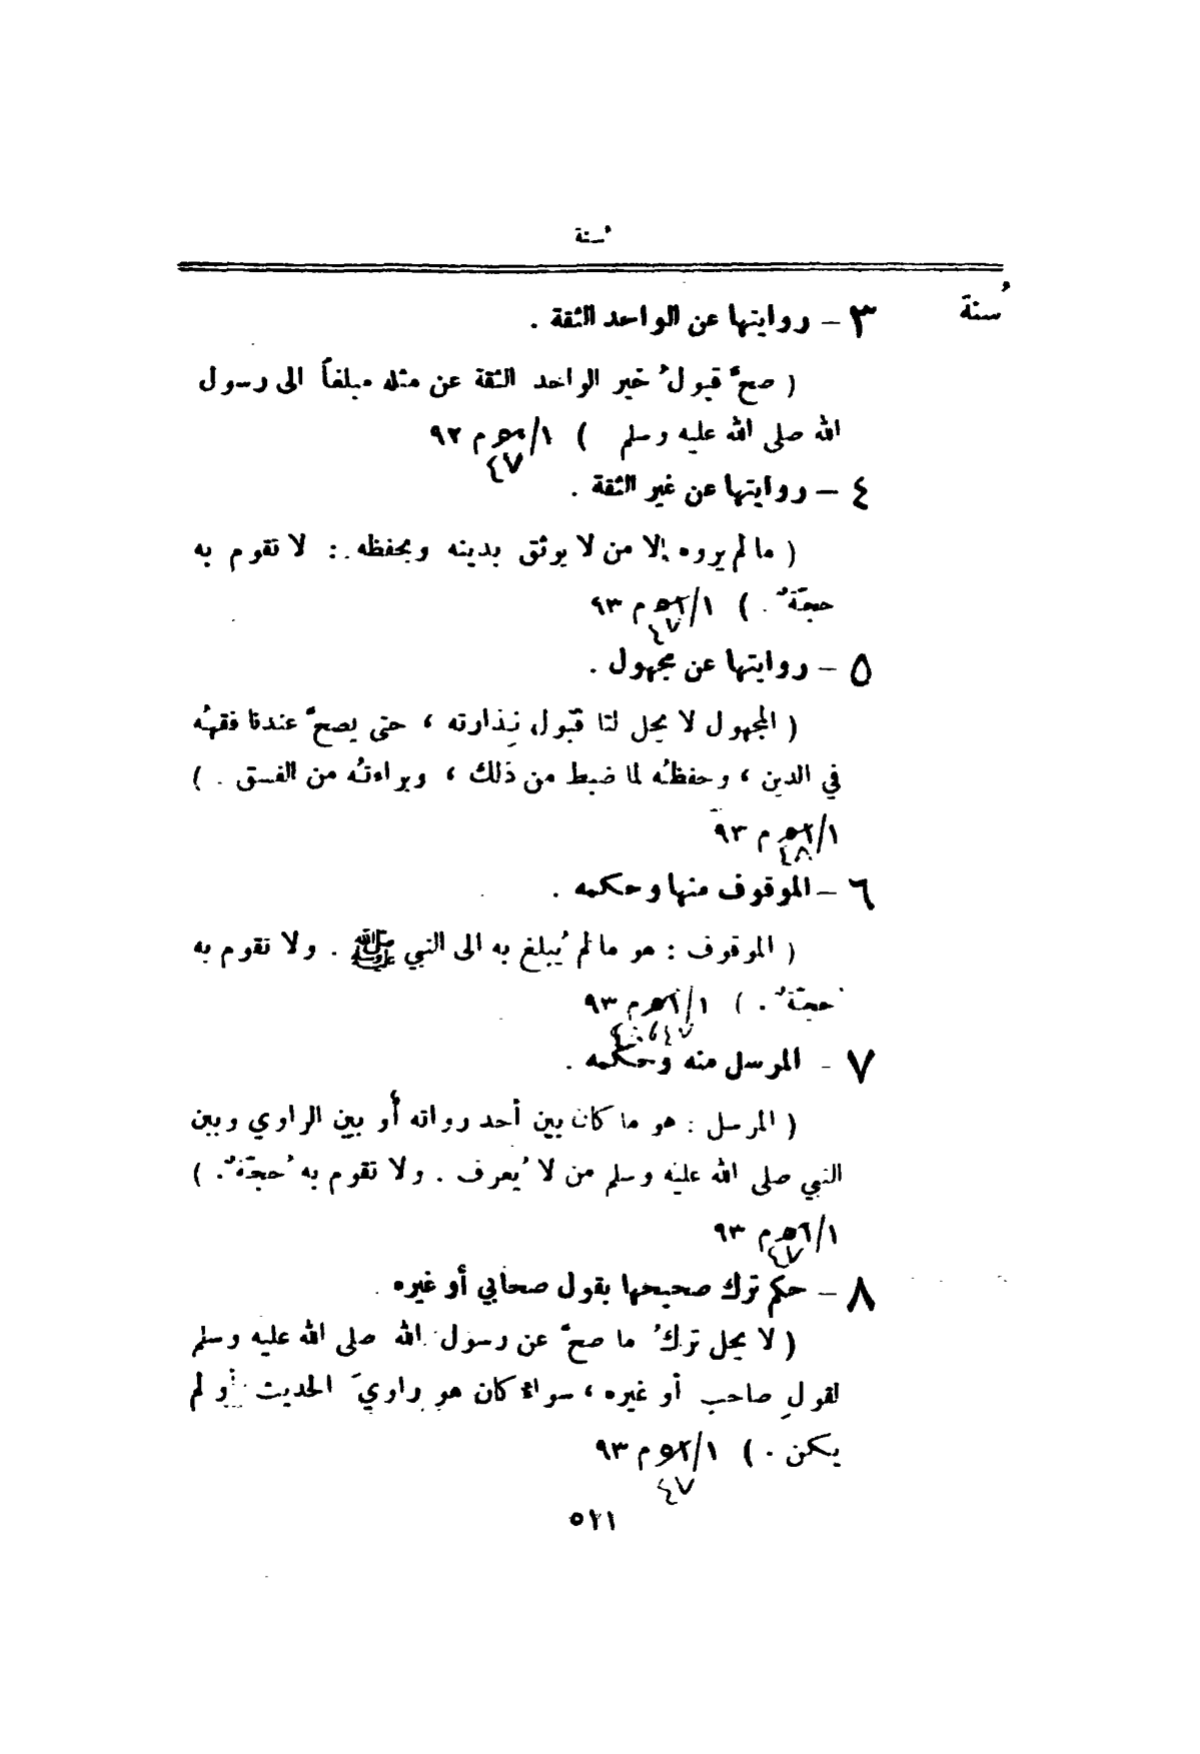 سُنة
سُنة
٣ – روايتها عن الواحد الثقة .
( صحَّ قبولُ خبر الواحد الثقة عن مثله مبلغاً الى رسول
الله صلى الله عليه وسلم ) ١/ م ٩٢
٤٧
٤ – روايتها عن غير الثقة .
( ما لم يروه إلا من لا يوثق بدينه وبحفظه : لا تقوم به
حجّةٌ . ) ١/٥٢ م ٩٣
٤٧
٥ – روايتها عن مجهول .
( المجهول لا يحل لنا قبول نِذارته ، حتى يصحَّ عندنا فقهُه
في الدين ، وحفظُه لما ضبط من ذلك ، وبراءتُه من الفسق . )
١/٥٢ م ٩٣
٤٨
٦ – الموقوف منها وحكمه .
( الموقوف : هو ما لم يُبلغ به الى النبي ﷺ . ولا تقوم به
حجّةٌ . ) ١/ م ٩٣
٧ – المرسل منه وحكمه .
( المرسل : هو ما كان بين أحد رواته أو بين الراوي وبين
النبي صلى الله عليه وسلم من لا يُعرف . ولا تقوم به حُجّةٌ . )
١/ م ٩٣
٤٧
٨ – حكم ترك صحيحها بقول صحابي أو غيره .
( لا يحل تركُ ما صحَّ عن رسول الله صلى الله عليه وسلم
لقولِ صاحب أو غيره ، سواءٌ كان هو راويَ الحديث أو لم
يكن . ) ١/٥٢ م ٩٣
٤٧
٥٢١